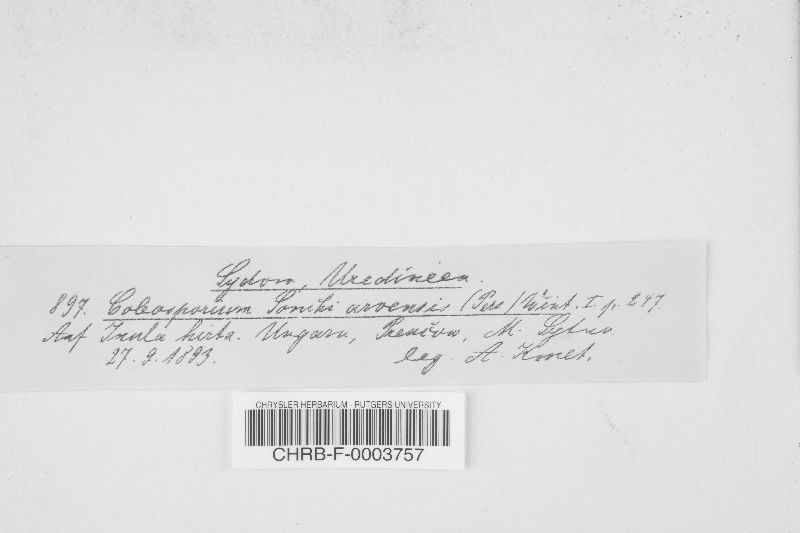 Sydow, Uredineen.
897. Coleosporium Sonchi arvensis (Pers) Wint. I. p. 247.
Auf Inula hirta. Ungarn, Prenčow, M. Sytno
27. 9. 1893. leg. A. Kmet.
CHRYSLER HERBARIUM - RUTGERS UNIVERSITY
CHRB-F-0003757